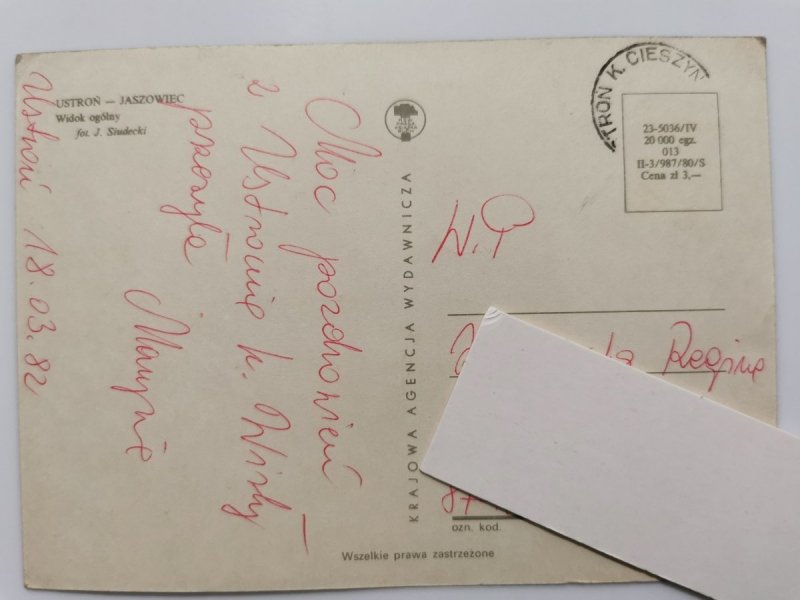 USTROŃ — JASZOWIEC
Widok ogólny
fot. J. Siudecki
Ustroń 18.03.82
Moc pozdrowień
z Ustronia k. Wisły
przesyła
KRAJOWA AGENCJA WYDAWNICZA
TROŃ K. CIESZYN
23-5036/IV
20 000 egz.
013
II-3/987/80/S
Cena zł 3,—
W.P
Regina
87
ozn. kod.
Wszelkie prawa zastrzeżone